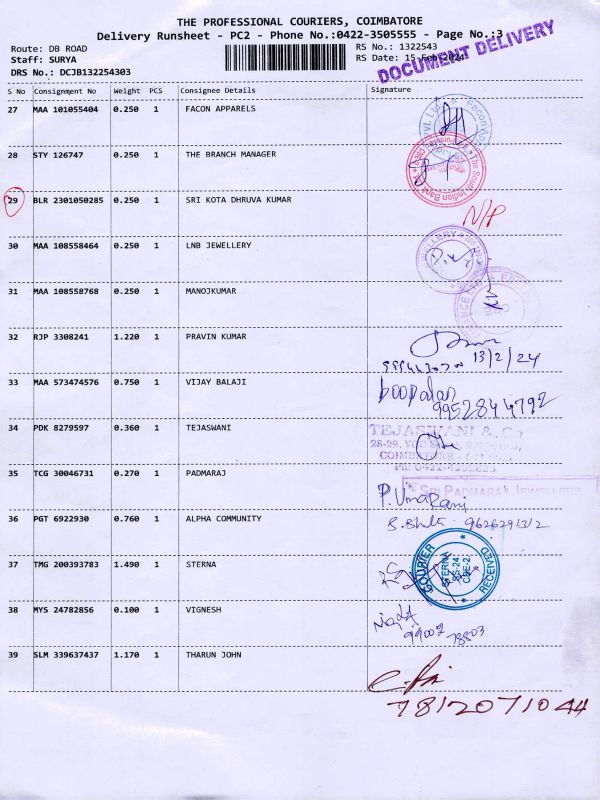 THE PROFESSIONAL COURIERS, COIMBATORE
Delivery Runsheet - PC2 - Phone No.:0422-3505555 - Page No.:3
Route: DB ROAD RS No.: 1322543
Staff: SURYA RS Date: 15-Feb-2024
DRS No.: DCJB132254303 DOCUMENT DELIVERY
S No Consignment No Weight PCS Consignee Details Signature
27 MAA 101055404 0.250 1 FACON APPARELS
28 STY 126747 0.250 1 THE BRANCH MANAGER
The South Indian Bank
29 BLR 2301050285 0.250 1 SRI KOTA DHRUVA KUMAR
N/P
30 MAA 108558464 0.250 1 LNB JEWELLERY
31 MAA 108558768 0.250 1 MANOJKUMAR
32 RJP 3308241 1.220 1 PRAVIN KUMAR
13/2/24
33 MAA 573474576 0.750 1 VIJAY BALAJI boopalan
9952844792
34 PDK 8279597 0.360 1 TEJASWANI TEJASWANI & Co
28-29,
35 TCG 30046731 0.270 1 PADMARAJ
SRI PADMARAJ JEWELLERS
P. Uma Rani
36 PGT 6922930 0.760 1 ALPHA COMMUNITY
37 TMG 200393783 1.490 1 STERNA
COURIER RECEIVED
STERNA
CBE-2
38 MYS 24782856 0.100 1 VIGNESH
99002 78803
39 SLM 339637437 1.170 1 THARUN JOHN
7812071044